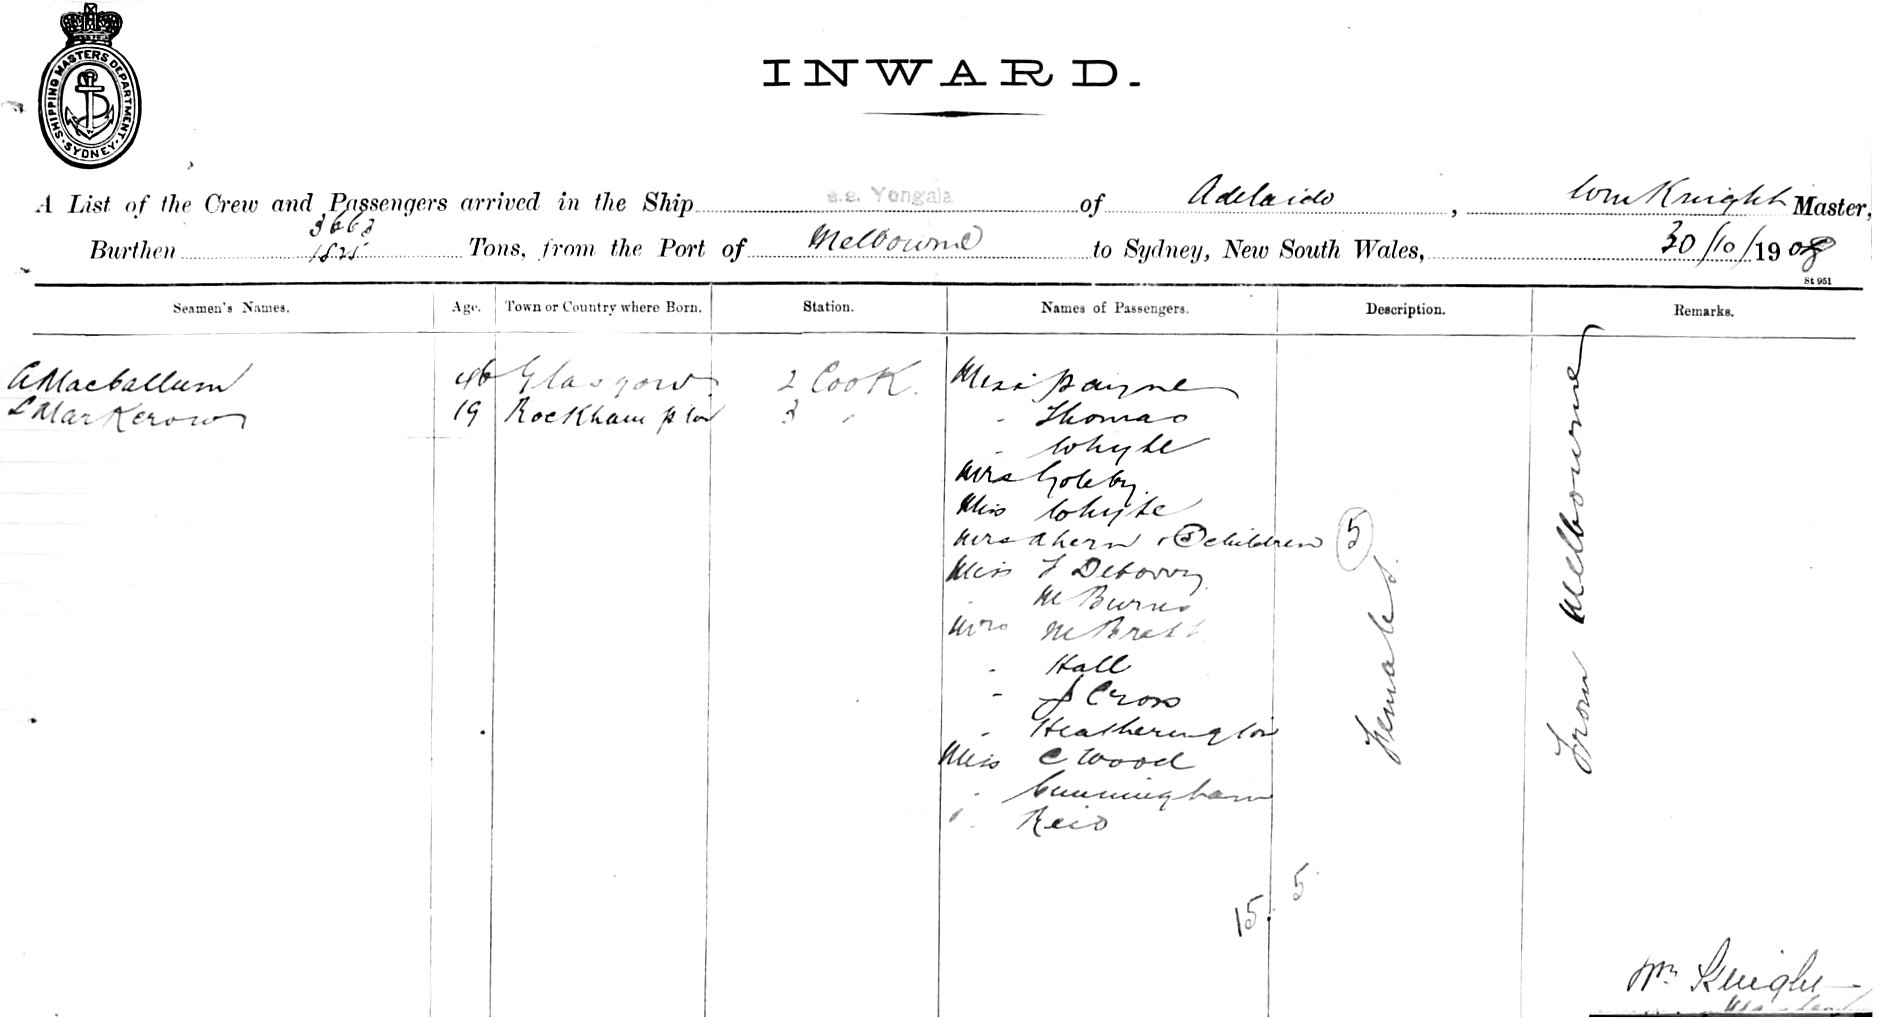 SHIPPING MASTERS DEPARTMENT. SYDNEY
INWARD.
A List of the Crew and Passengers arrived in the Ship s.s. Yongala of Adelaide, Wm Knight Master,
3663
Burthen 1825 Tons, from the Port of Melbourne to Sydney, New South Wales, 30/10/1908
St 951
Seamen's Names. Age. Town or Country where Born. Station. Names of Passengers. Description. Remarks.
A MacCallum 46 Glasgow 2 Cook. Miss Payne
L Markerow 19 Rockhampton 3 " " Thomas
" Whyte
Mrs Goleby
Miss Whyte
Mrs Ahern & 5 children 5
Miss F
" M Burns
Mrs M Brett
" Hall
" J Cross
" Heatherington
Miss C Wood
" Cunningham
" Reid
Females.
From Melbourne
15. 5.
Wm Knight
Master